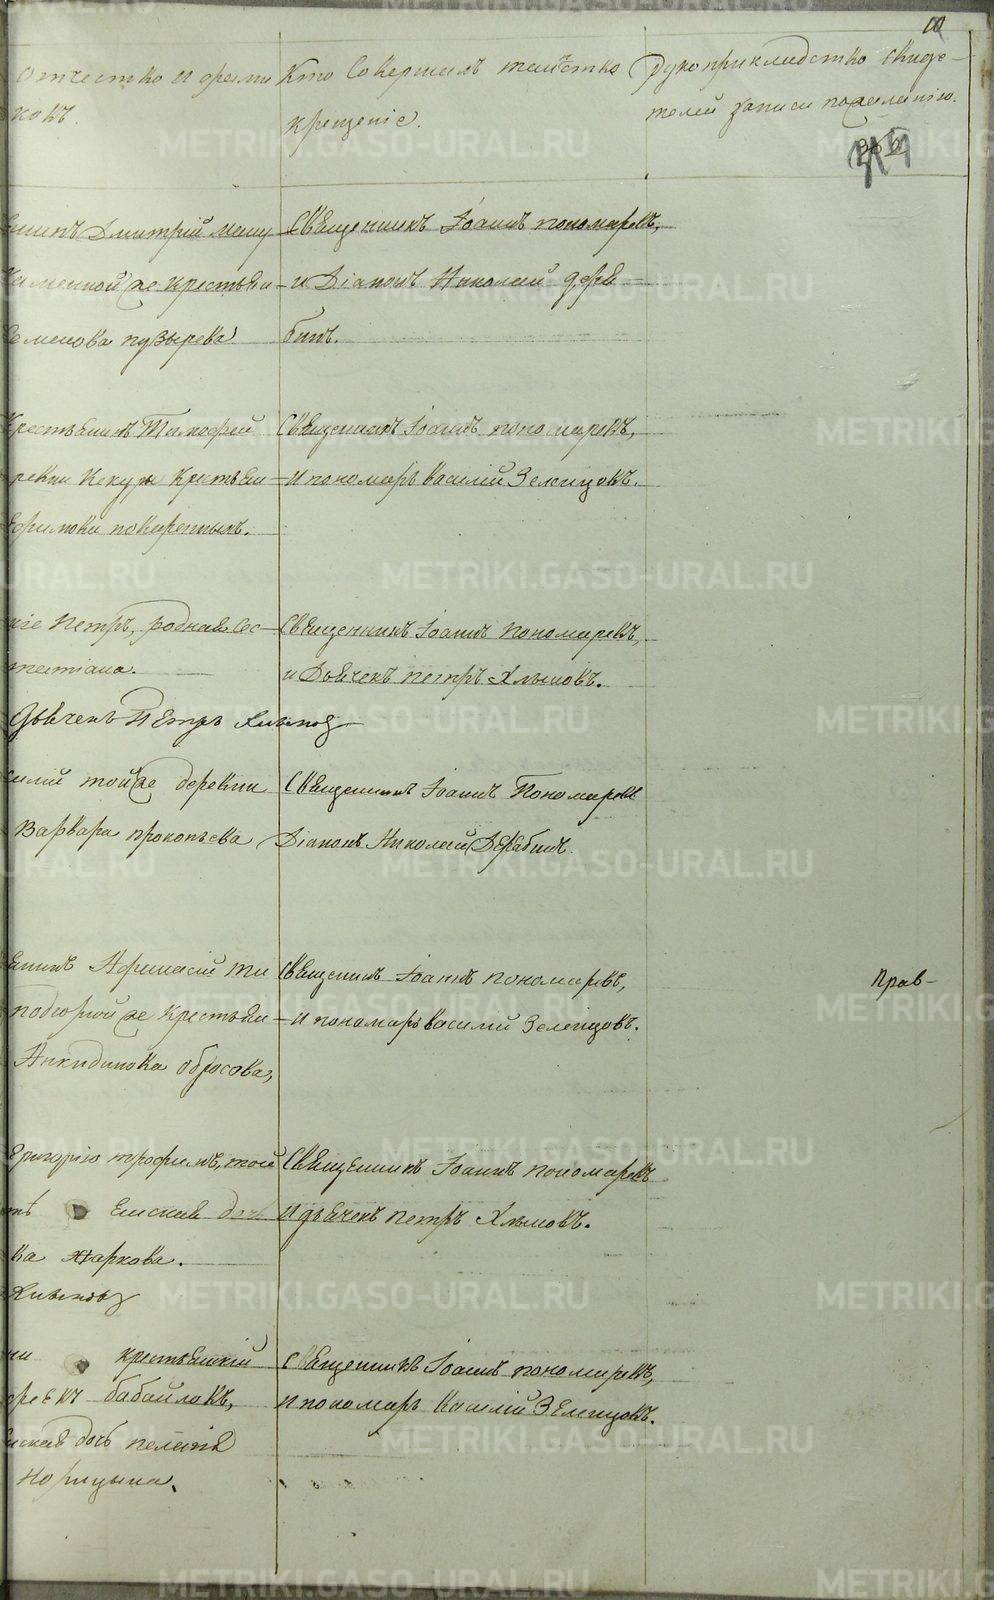 отчество и фами
ковъ.
Кто Совершилъ таинство
крещеніе.
Рукоприкладство свиде-
телей записи по желанію.
Дмитрій
же крестьян-
Семенова пузырева
Священникъ Іоаннъ пономаревъ,
и Діаконъ Николай дера
бинъ.
Крестьянинъ Тимофей
Крестьян-
Священникъ Іоаннъ пономаревъ,
и пономарь василій Зеленцовъ.
Петръ, родная сес-
Священникъ Іоаннъ Пономаревъ,
и Дьячекъ петръ Хлыновъ.
Дьячекъ Петръ Хлыновъ
силій тойже деревни
Варвара прокопьева
Священникъ Іоаннъ Пономаревъ
Діаконъ Николай Дерабинъ
Афанасій
подгорной же Крестьян-
Аникидинова обросова,
Священникъ Іоаннъ пономаревъ,
и пономарь василій Зеленцовъ.
Прав-
Григорія трофимъ, той
енская дочь
ва жаркова.
Хлыновъ
Священникъ Іоаннъ пономаревъ
и дьячекъ петръ Хлыновъ.
крестьянскій
бабайловъ,
енская дочь пелагія
Норицына.
Священникъ Іоаннъ пономаревъ,
и пономарь Василій Зеленцовъ.
METRIKI.GASO-URAL.RU